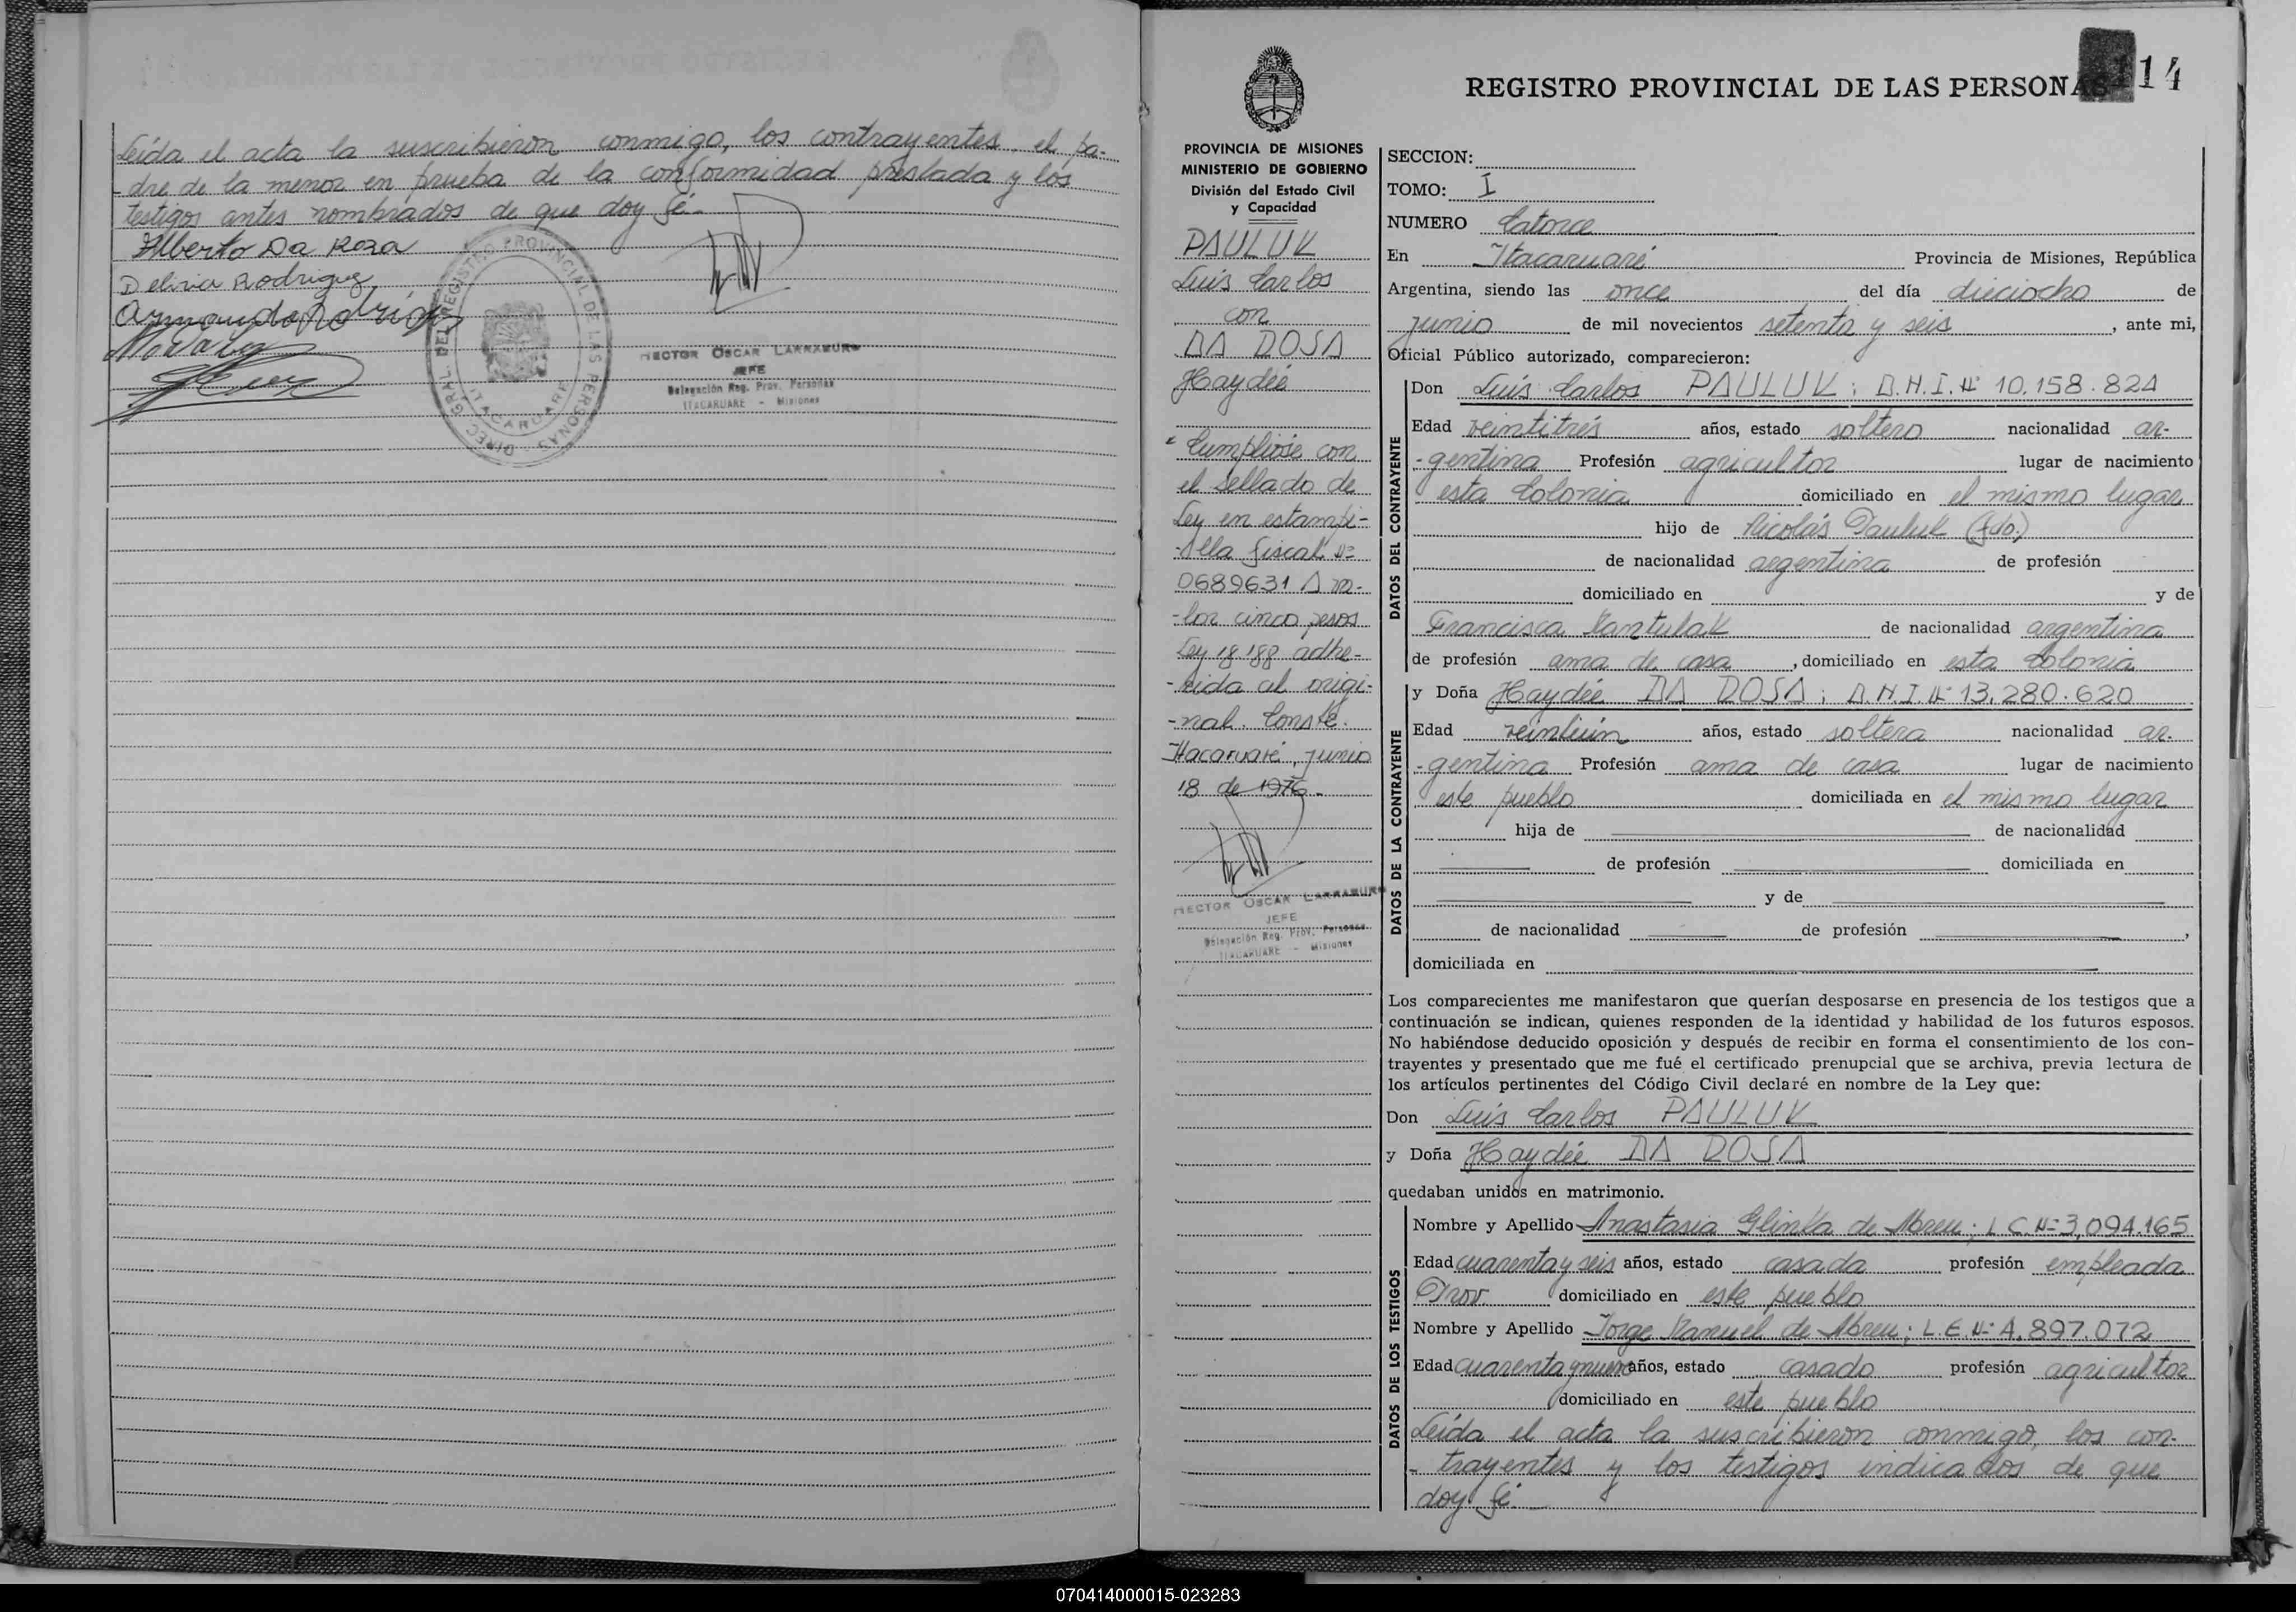 Leída el acta la suscribieron conmigo, los contrayentes, el pa-
-dre de la menor en prueba de la conformidad prestada y los
testigos antes nombrados de que doy fé.-
Alberto Da Roza
Delicia Rodriguez
DIREC. GRAL. DEL REGISTRO PROVINCIAL DE LAS PERSONAS
ITACARUARE
HECTOR OSCAR LARRABURO
JEFE
Delegación Reg. Prov. Personas
ITACARUARE - Misiones
REGISTRO PROVINCIAL DE LAS PERSONAS 114
PROVINCIA DE MISIONES
MINISTERIO DE GOBIERNO
División del Estado Civil
y Capacidad
PAULUK
Luis Carlos
con
DA ROSA
Haydée
"Cumplióse con
el sellado de
Ley en estampi-
-lla fiscal Nº
0689631 A va-
-lor cinco pesos
Ley 18.188 adhe-
-rida al origi-
-nal. Conste.
Itacaruaré, junio
18 de 1976.-
HECTOR OSCAR LARRABURO
JEFE
Delegación Reg. Prov. Personas
ITACARUARE - Misiones
SECCION:
TOMO: I
NUMERO Catorce
En Itacaruaré Provincia de Misiones, República
Argentina, siendo las once del día dieciocho de
junio de mil novecientos setenta y seis, ante mi,
Oficial Público autorizado, comparecieron:
DATOS DEL CONTRAYENTE
Don Luis Carlos PAULUK; D.N.I. Nº 10.158.824
Edad veintitrés años, estado soltero nacionalidad ar-
-gentina Profesión agricultor lugar de nacimiento
esta Colonia domiciliado en el mismo lugar
hijo de Nicolás Pauluk (fdo.)
de nacionalidad argentina de profesión
domiciliado en y de
Francisca Mantulak de nacionalidad argentina
de profesión ama de casa, domiciliado en esta Colonia
DATOS DE LA CONTRAYENTE
y Doña Haydée DA ROSA; D.N.I. Nº 13.280.620
Edad veintiún años, estado soltera nacionalidad ar-
-gentina Profesión ama de casa lugar de nacimiento
este pueblo domiciliada en el mismo lugar
hija de de nacionalidad
de profesión domiciliada en
y de
de nacionalidad de profesión ,
domiciliada en
Los comparecientes me manifestaron que querían desposarse en presencia de los testigos que a
continuación se indican, quienes responden de la identidad y habilidad de los futuros esposos.
No habiéndose deducido oposición y después de recibir en forma el consentimiento de los con-
trayentes y presentado que me fué el certificado prenupcial que se archiva, previa lectura de
los artículos pertinentes del Código Civil declaré en nombre de la Ley que:
Don Luis Carlos PAULUK
y Doña Haydée DA ROSA
quedaban unidos en matrimonio.
DATOS DE LOS TESTIGOS
Nombre y Apellido Anastasia Glinka de Abreu; L.C. Nº 3,094.165
Edad cuarenta y seis años, estado casada profesión empleada
Prov. domiciliado en este pueblo
Nombre y Apellido Jorge Manuel de Abreu; L.E. Nº 4.897.072
Edad cuarenta y nueve años, estado casado profesión agricultor
domiciliado en este pueblo
Leída el acta la suscribieron conmigo, los con-
-trayentes y los testigos indicados de que
doy fé.-
070414000015-023283